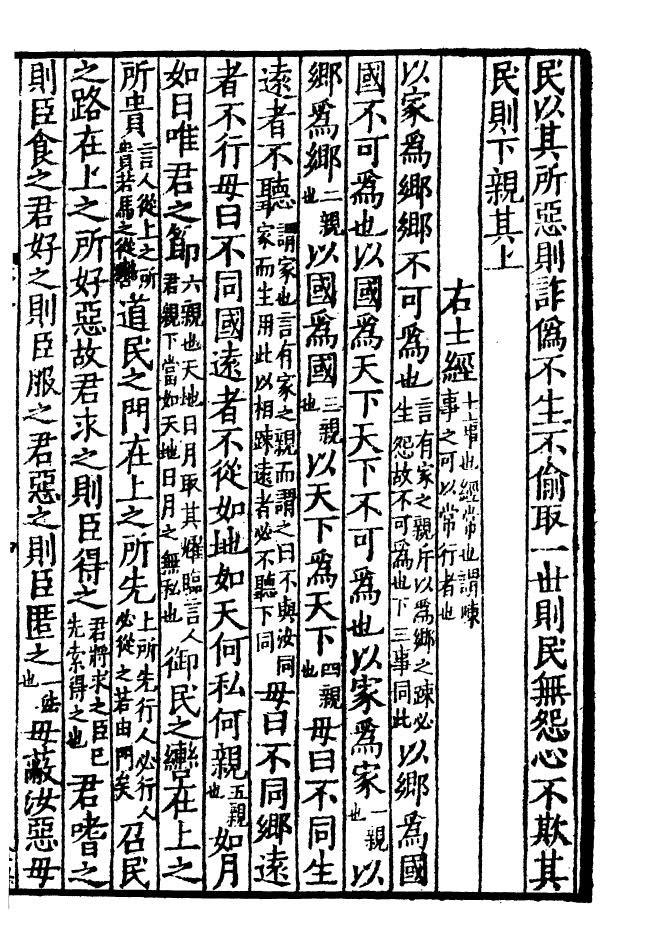 民以其所惡則詐偽不生不偷取一世則民無怨心不欺其
民則下親其上
右士經十事也經常也謂陳事之可以常行者也
以家爲鄉鄉不可爲也言有家之親斥以爲鄉之踈必生怨故不可爲也下三事同此以鄉爲國
國不可爲也以國爲天下天下不可爲也以家爲家一親也以
鄉爲鄉二親也以國爲國三親也以天下爲天下四親也毋曰不同生
遠者不聽謂家也言有家之親而謂之曰不與汝同家而生用此以相踈遠者必不聽下同毋曰不同鄉遠
者不行毋曰不同國遠者不從如地如天何私何親五親也如月
如日唯君之節六親也天地日月取其耀臨言人君親下當如天地日月之無私也御民之轡在上之
所貴言人從上之所貴若馬之從轡道民之門在上之所先上所先行人必行人必從之若由門矣召民
之路在上之所好惡故君求之則臣得之君將求之臣已先索得之也君嗜之
則臣食之君好之則臣服之君惡之則臣匿之一法也毋蔽汝惡毋